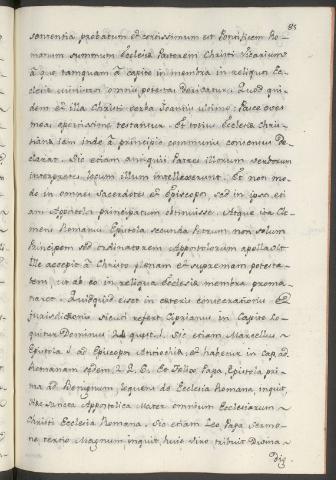 85
sententia probatum et certissimum est Pontificem Ro-
manum summum Ecclesiæ Pastorem Christi Vicarium
à quo tamquam à capite in membra in reliqua Ec-
clesiæ omnis potestas derivatur. Quod qui-
dem et illa Christi verba Joannis ultimo: Pasce oves
meas apertissime testantur. Et totius Ecclesiæ Chris-
tianæ iam inde à principio communis consensus de-
clarat. Sic etiam antiqui Patres illorum verborum
interpretes locum illum intellexerunt. Et non mo-
do in omnes Sacerdotes et Episcopos, sed in ipsos eti-
am Apostolos principatum obtinuisse. Atque ita Cle-
mens Romanus Epistola secunda Petrum non solum
Principem sed ordinatorem Apostolorum apellavit
Ille accepit à Christo plenam et supremam potesta-
tem ut ab eo in reliqua Ecclesiæ membra prema-
naret. Quidquid esset in cæteris consecrationis et
jurisdictionis sicuti refert Ciprianus in Capite Lo-
quitur Dominus 24 quæst. 1. Sic etiam Marcellus
Epistola 1. ad Episcopos Antiochiæ et habetur in cap. ad
Romanam 2. Q. 6. Et Felix Papa, Epistola pri-
ma ad Benignum loquens de Ecclesia Romana, inquit,
Hæc sancta Apostolica Mater omnium Ecclesiarum
Christi Ecclesia Romana. Sic etiam Leo, Papa Sermo-
ne, tertio Magnum, inquit, huic viro tribuit Divina
dig-